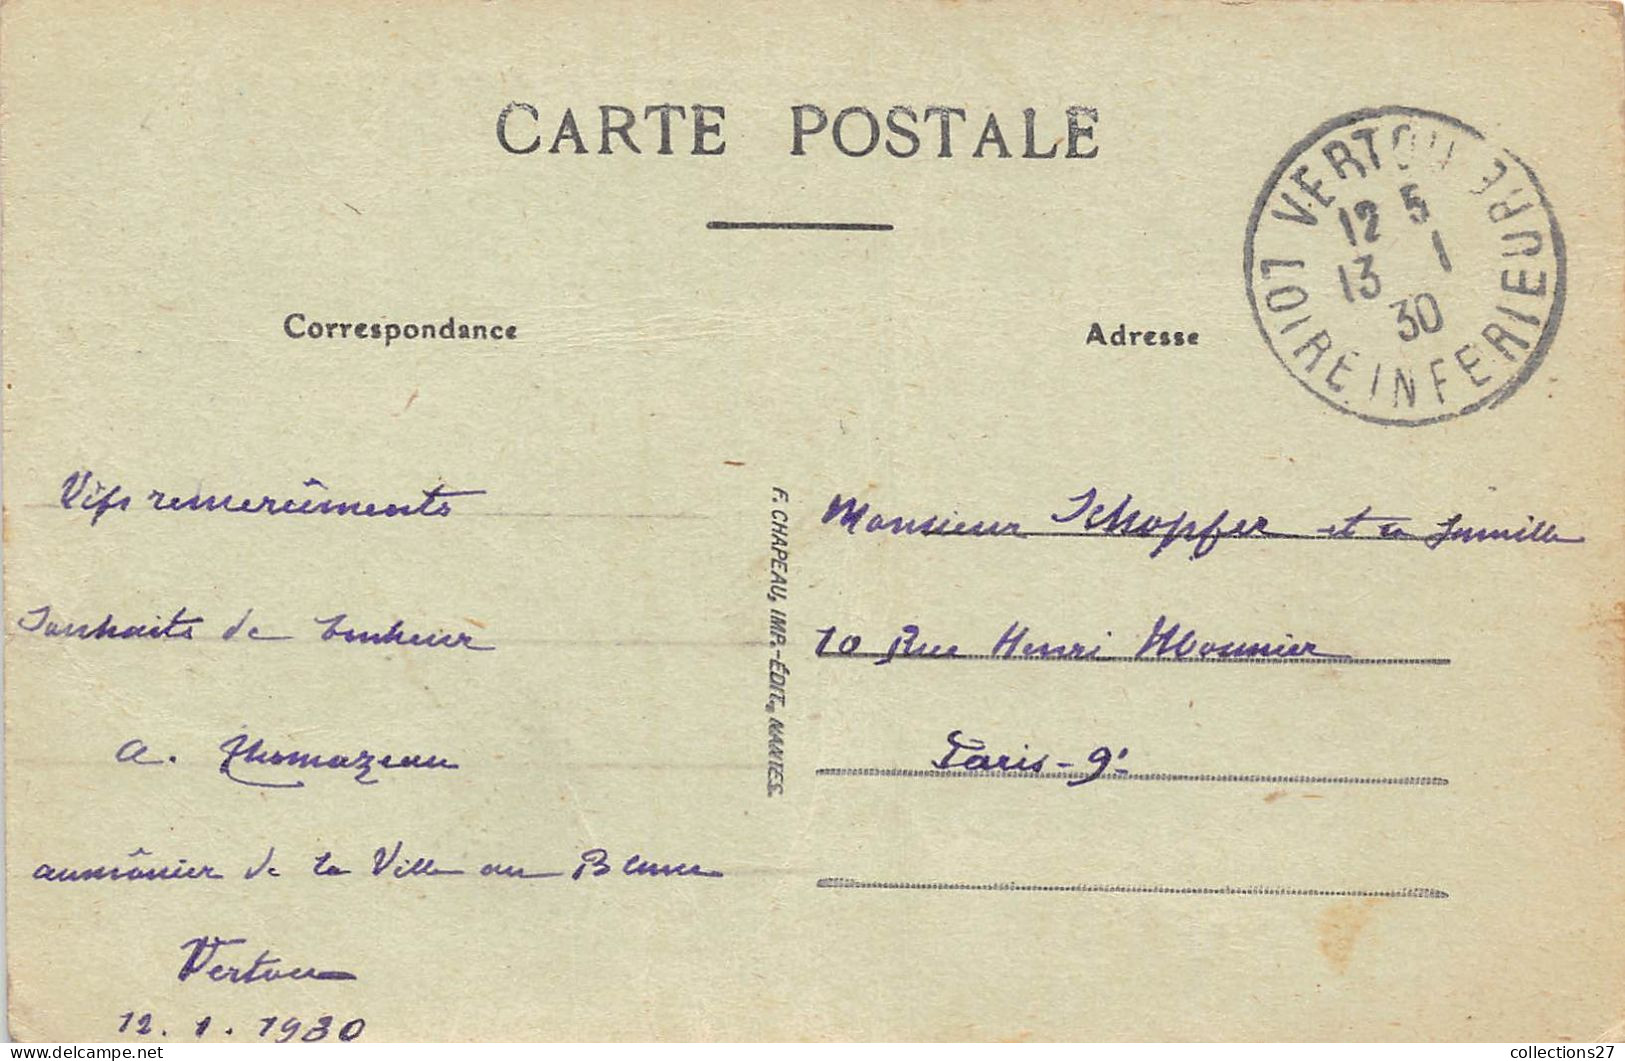 CARTE POSTALE
VERTOU LOIRE INFERIEURE
12 5
13 1
30
Correspondance
Adresse
Vifs remerciements
Souhaits de bonheur
A. Thomazeau
aumônier de la Ville au Blanc
Vertou
12.1.1930
F. CHAPEAU, IMP.-ÉDIT., NANTES.
Monsieur Schopfer et sa famille
10 Rue Henri Monnier
Paris-9e
collections27